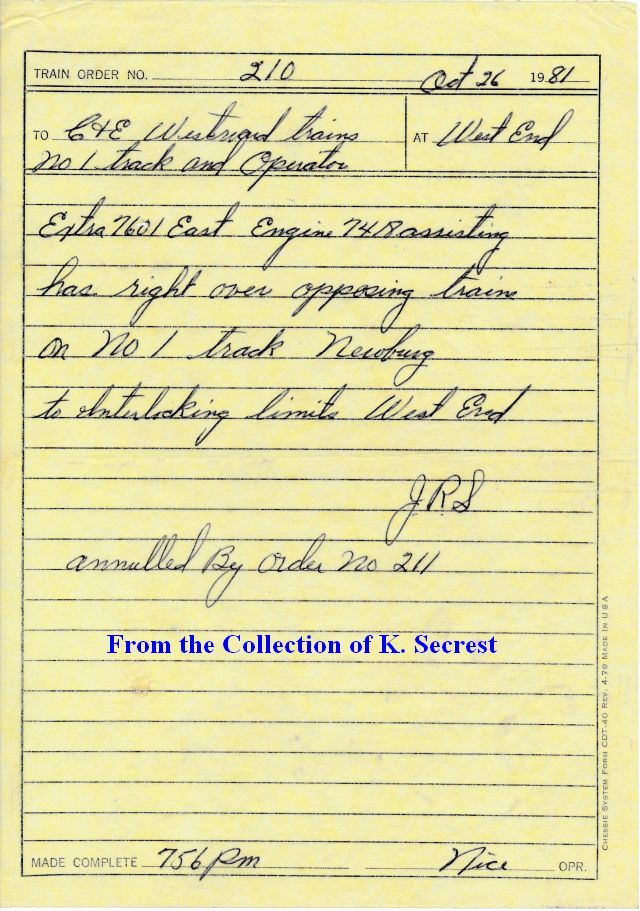 TRAIN ORDER NO. 210 Oct 26 1981
TO C&E Westward trains AT West End
No 1 track and Operator
Extra 7601 East Engine 7418 assisting
has right over opposing trains
on No 1 track Newburg
to Interlocking limits West End
J.R.S
annulled By Order No 211
From the Collection of K. Secrest
MADE COMPLETE 756 Pm Nice OPR.
CHESSIE SYSTEM FORM CDT-40 REV. 4-79 MADE IN USA